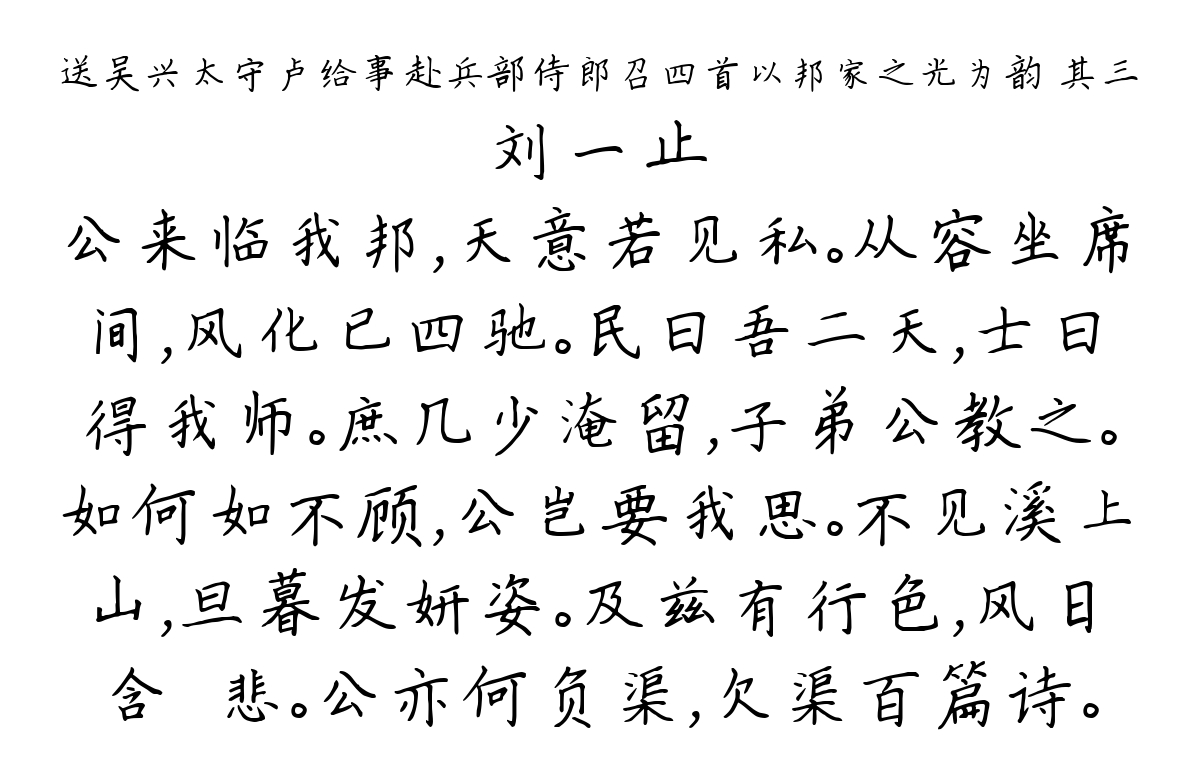 送吴兴太守卢给事赴兵部侍郎召四首以邦家之光为韵 其三
刘一止
公来临我邦,天意若见私。从容坐席
间,风化已四驰。民曰吾二天,士曰
得我师。庶几少淹留,子弟公教之。
如何如不顾,公岂要我思。不见溪上
山,旦暮发妍姿。及兹有行色,风日
含 悲。公亦何负渠,欠渠百篇诗。